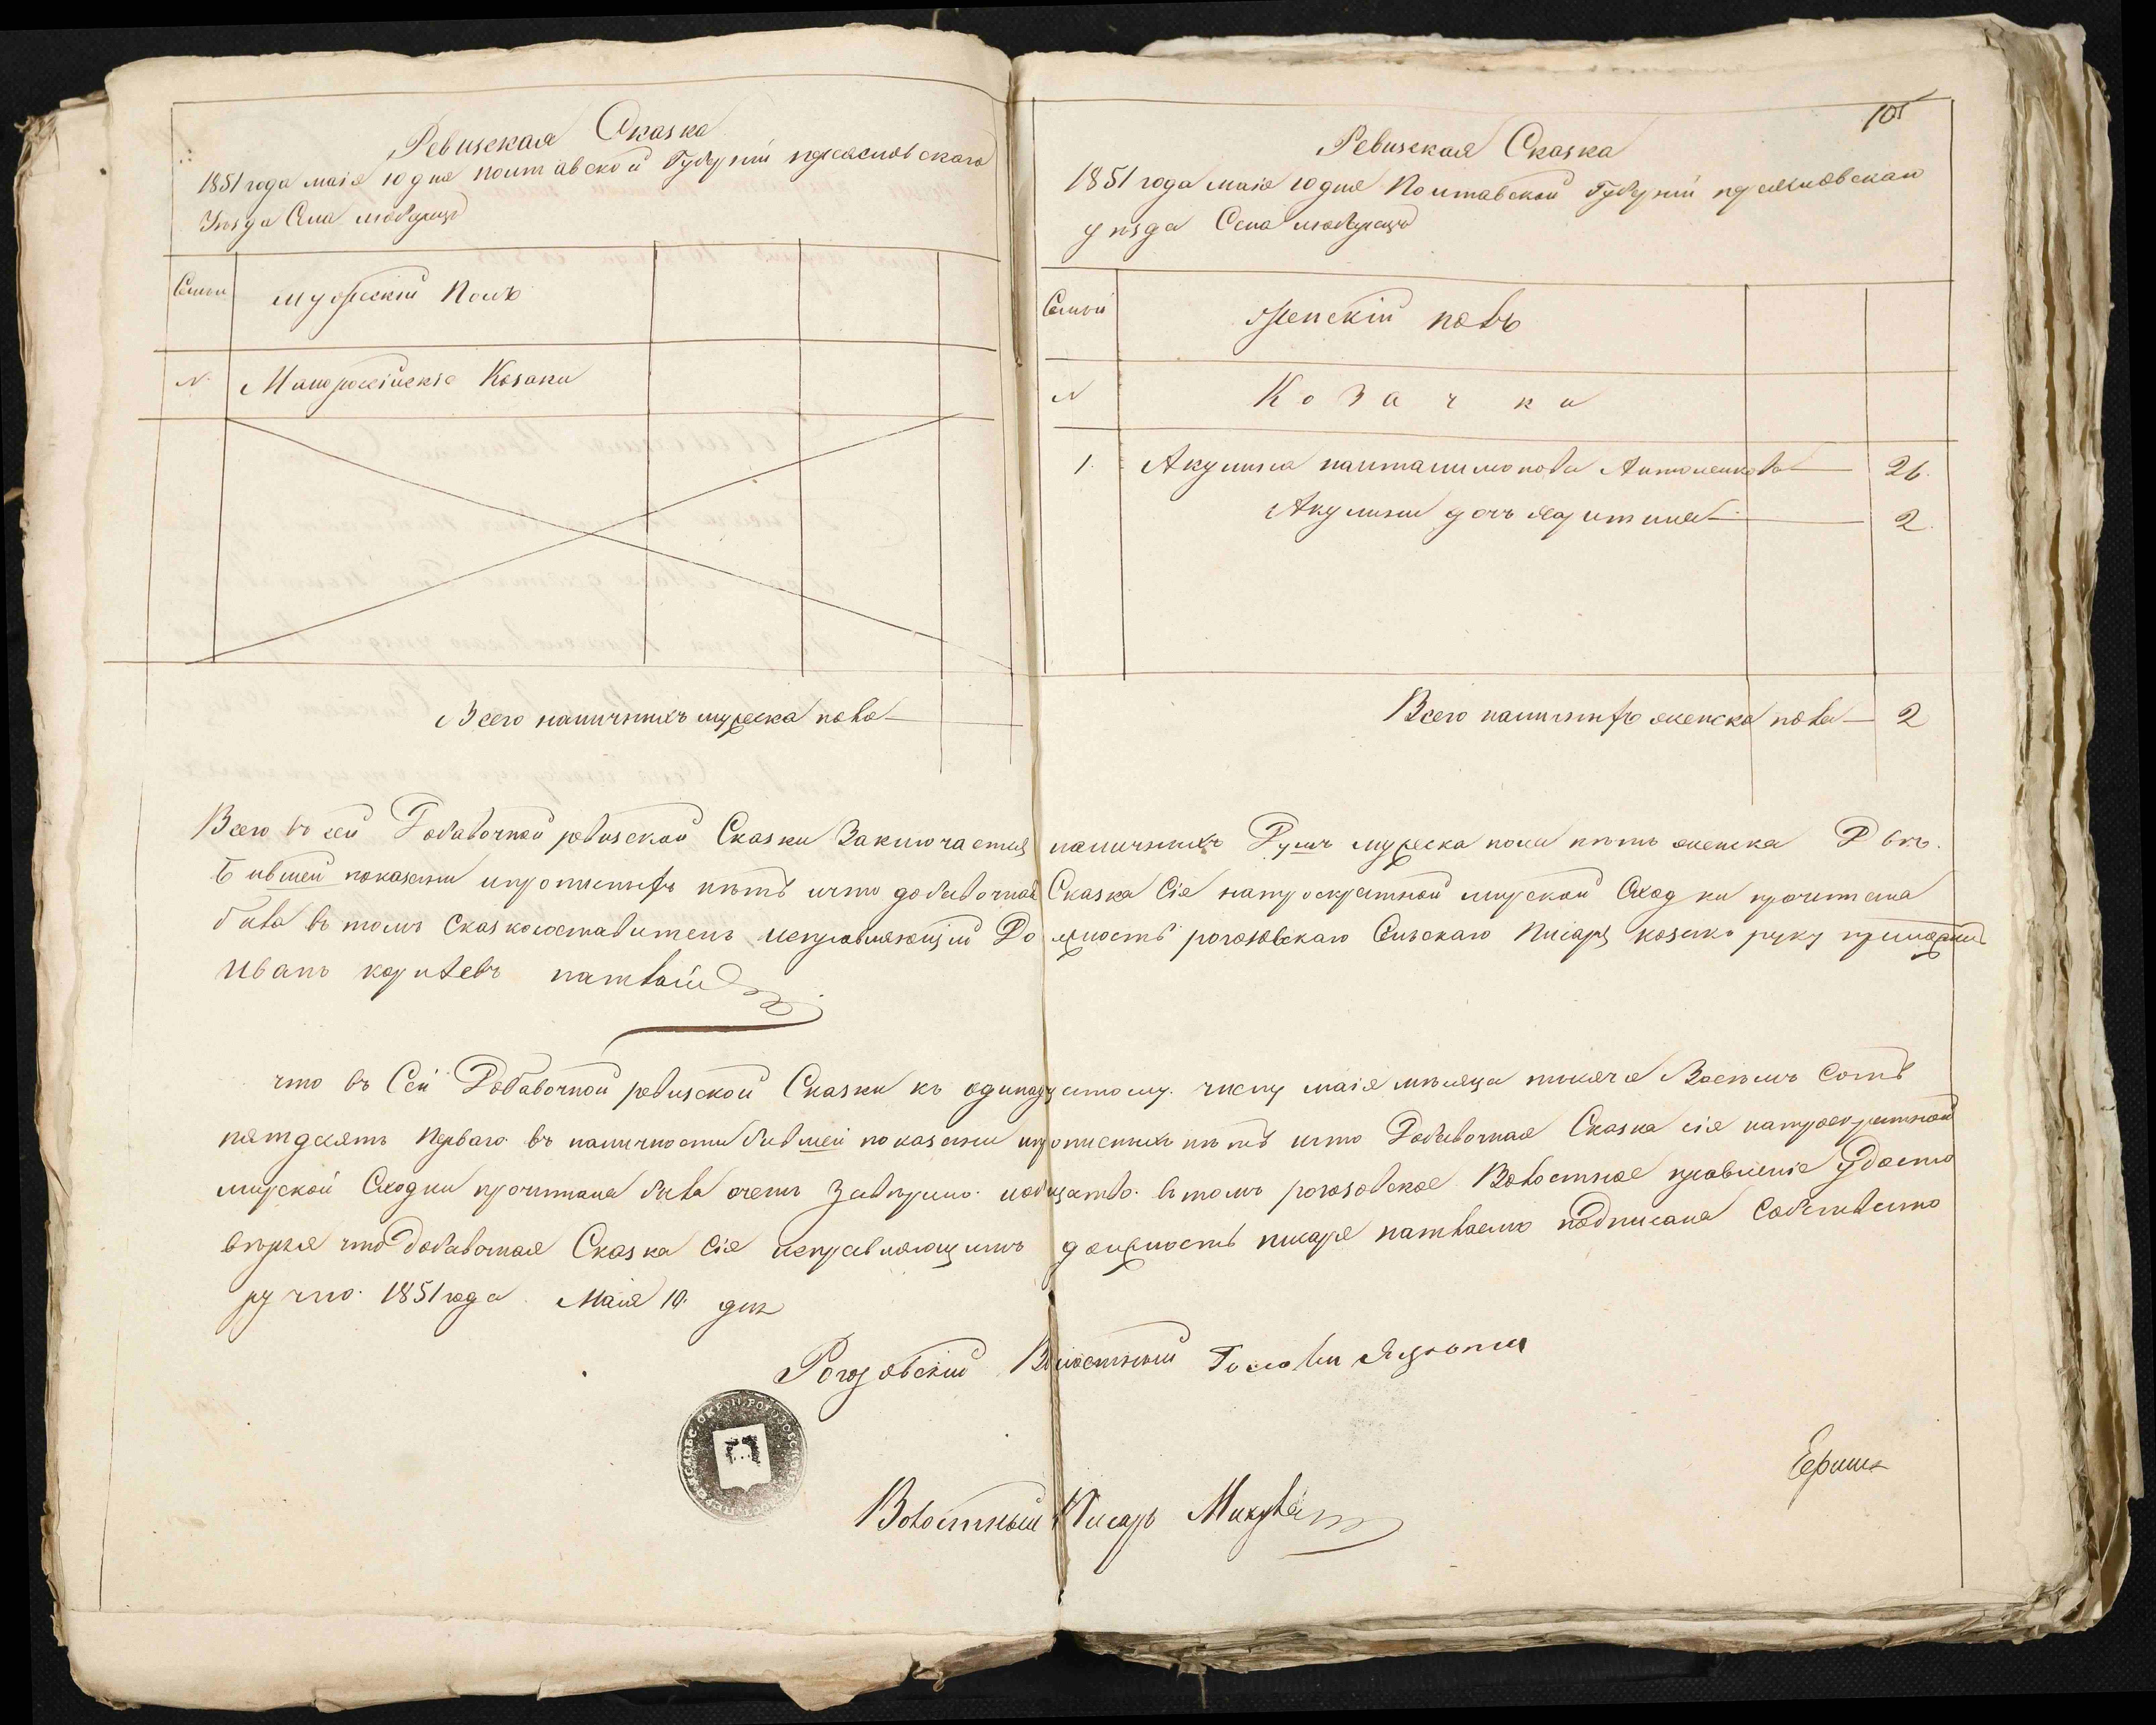 Ревизская Сказка
1851 года маія 10 дня Полтавской Губерніи переяславского
Уезда Села любарцъ
Семьи
мужескій Полъ
№
Малороссійскіе Козаки
Всего наличныхъ мужеска пола
105
Ревизская Сказка
1851 года маія 10 дня Полтавской Губерніи переяславскаго
уезда Села любарецъ
Семьи
Женскій полъ
№
Козачки
1. Акулина пантелимонова Антоненкова 26.
Акулины дочь 2.
Всего наличныхъ женска пола 2
Всего въ сей Добавочной ревизской Сказки Заключается наличныхъ Душъ мужеска пола нетъ женска Две.
Бившей показаны и прописныхъ нетъ и что добавочная Сказка Сія на троекратной мирской Сходки прочитана
била въ томъ Сказкосоставитель исправляющій Должность рогозовскаго Сельскаго Писаря козакъ руку приложилъ
Иванъ
что въ Сей Добавочной ревизской Сказки къ одинадцатому числу маія месяца тисяча Восемъ Сотъ
пятдесятъ Перваго въ наличности бившей показаны и прописныхъ нетъ и что Добавочная Сказка сія на троекратной
мирской Сходки прочитана била очемъ въ томъ рогозовское Волостное правленіе Удосто
веряя что добавочная Сказка Сія исправляющимъ должность писаря подписана Собственно
ручно. 1851 года Маія 10 дня
Рогозовскій Волостный Голова
Волостный Писарь